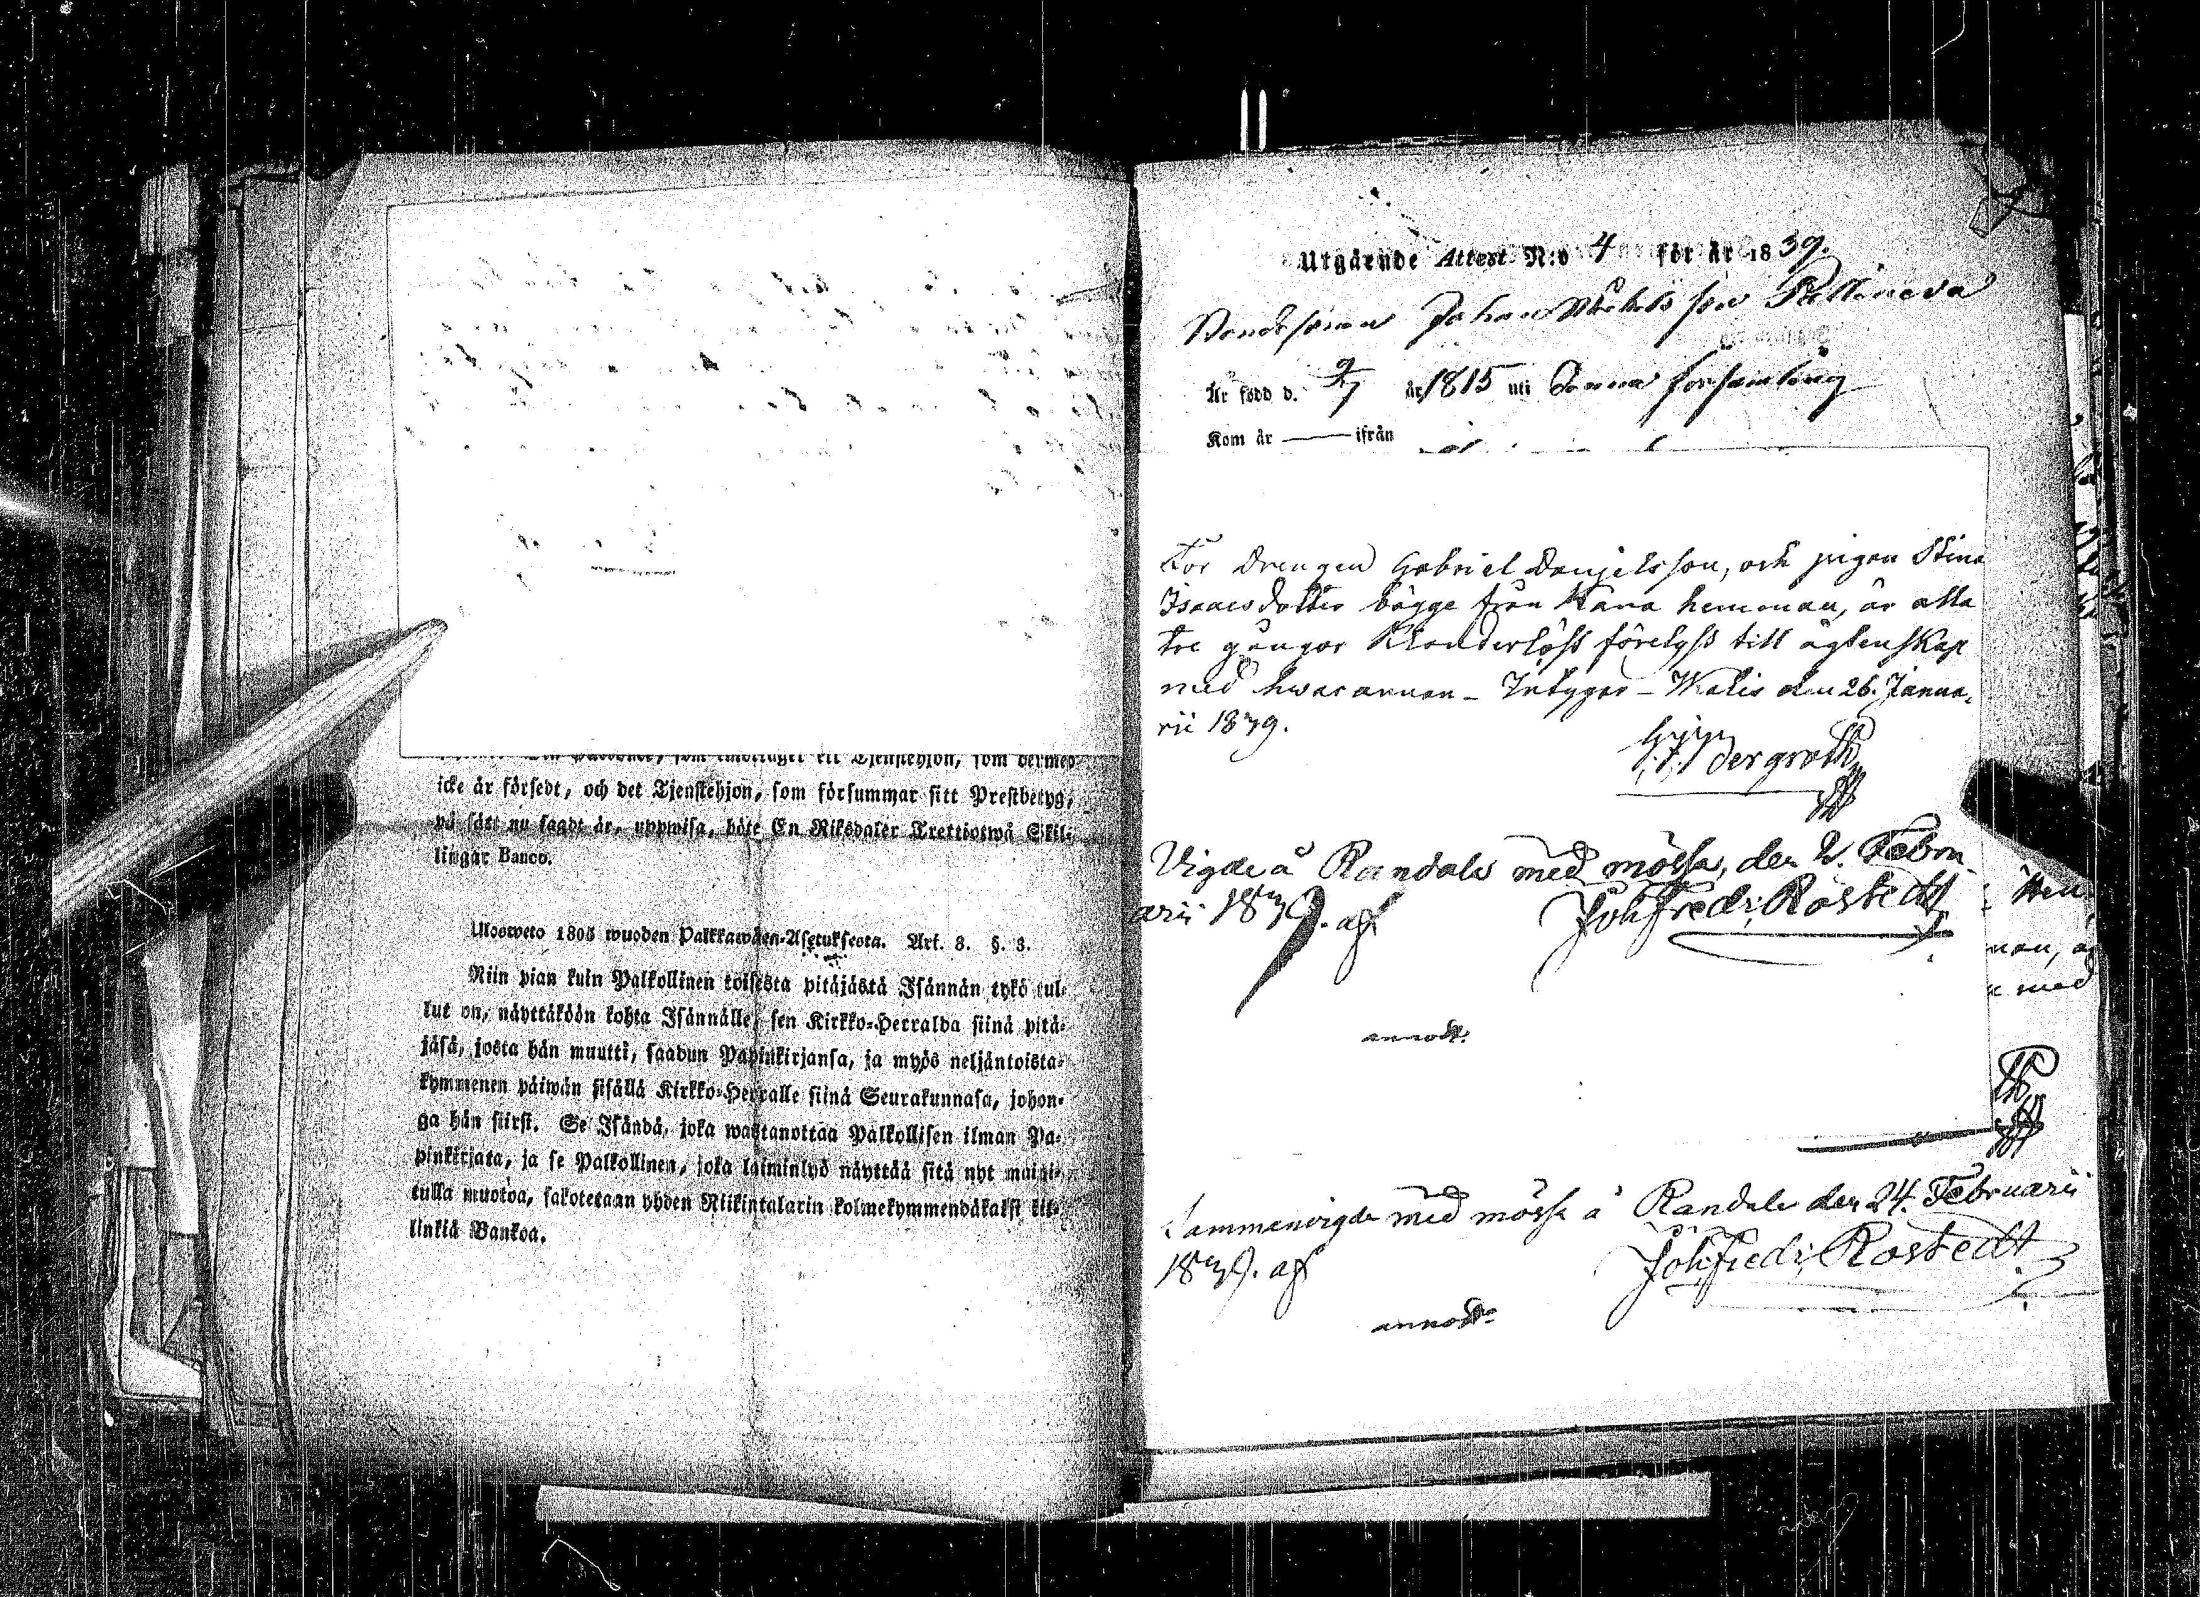 icke är försedt, och det Tjenstehjon, som försummar sitt Prestbetyg,
på sätt nu sagdt är, uppwisa, böte En Riksdaler Trettiotwå Skil-
lingar Banco.
Ulosweto 1805 wuoden Palkkawäen-Asetuksesta. Art. 8. §. 3.
Niin pian kuin Palkollinen toisesta pitäjästä Isännän tykö tul-
lut on, näyttäköön kohta Isännälle, sen Kirkko-Herralda siinä pitä-
jäsä, josta hän muutti, saadun Papinkirjansa, ja myös neljäntoista-
kymmenen päiwän sisällä Kirkko-Herralle siinä Seurakunnasa, johon-
ga hän siirsi. Se Isändä, joka wastanottaa Palkollisen ilman Pa-
pinkirjata, ja se Palkollinen, joka laiminlyö näyttää sitä nyt maini-
tulla muotoa, sakotetaan yhden Riikintalarin kolmekymmendäkaksi kil-
linkiä Bankoa.
Utgående Attest N:o 4 för år 1839.
Bondesonen Johan Michelsson
Är född d. 9/7 år 1815 uti Denna församling
Kom år — ifrån
För Drengen Gabriel Danjelsson, och pigan Stina
Isaacsdotter bägge från Kära hemman, är alla
tre gångor Klanderlöst förelyst till ägtenskap
med hwarannan – Intygar – Walis den 26. Janua-
rii 1839.
Bergroth
Vigde å Randala med mössa, den 2. Febru-
arii 1839. af Joh: Fredr: Rostedt
annott:
nan, ä
med
Sammanvigde med mössa å Randala den 24. Februarii
1839. af Joh: Fredr: Rostedt
annott: